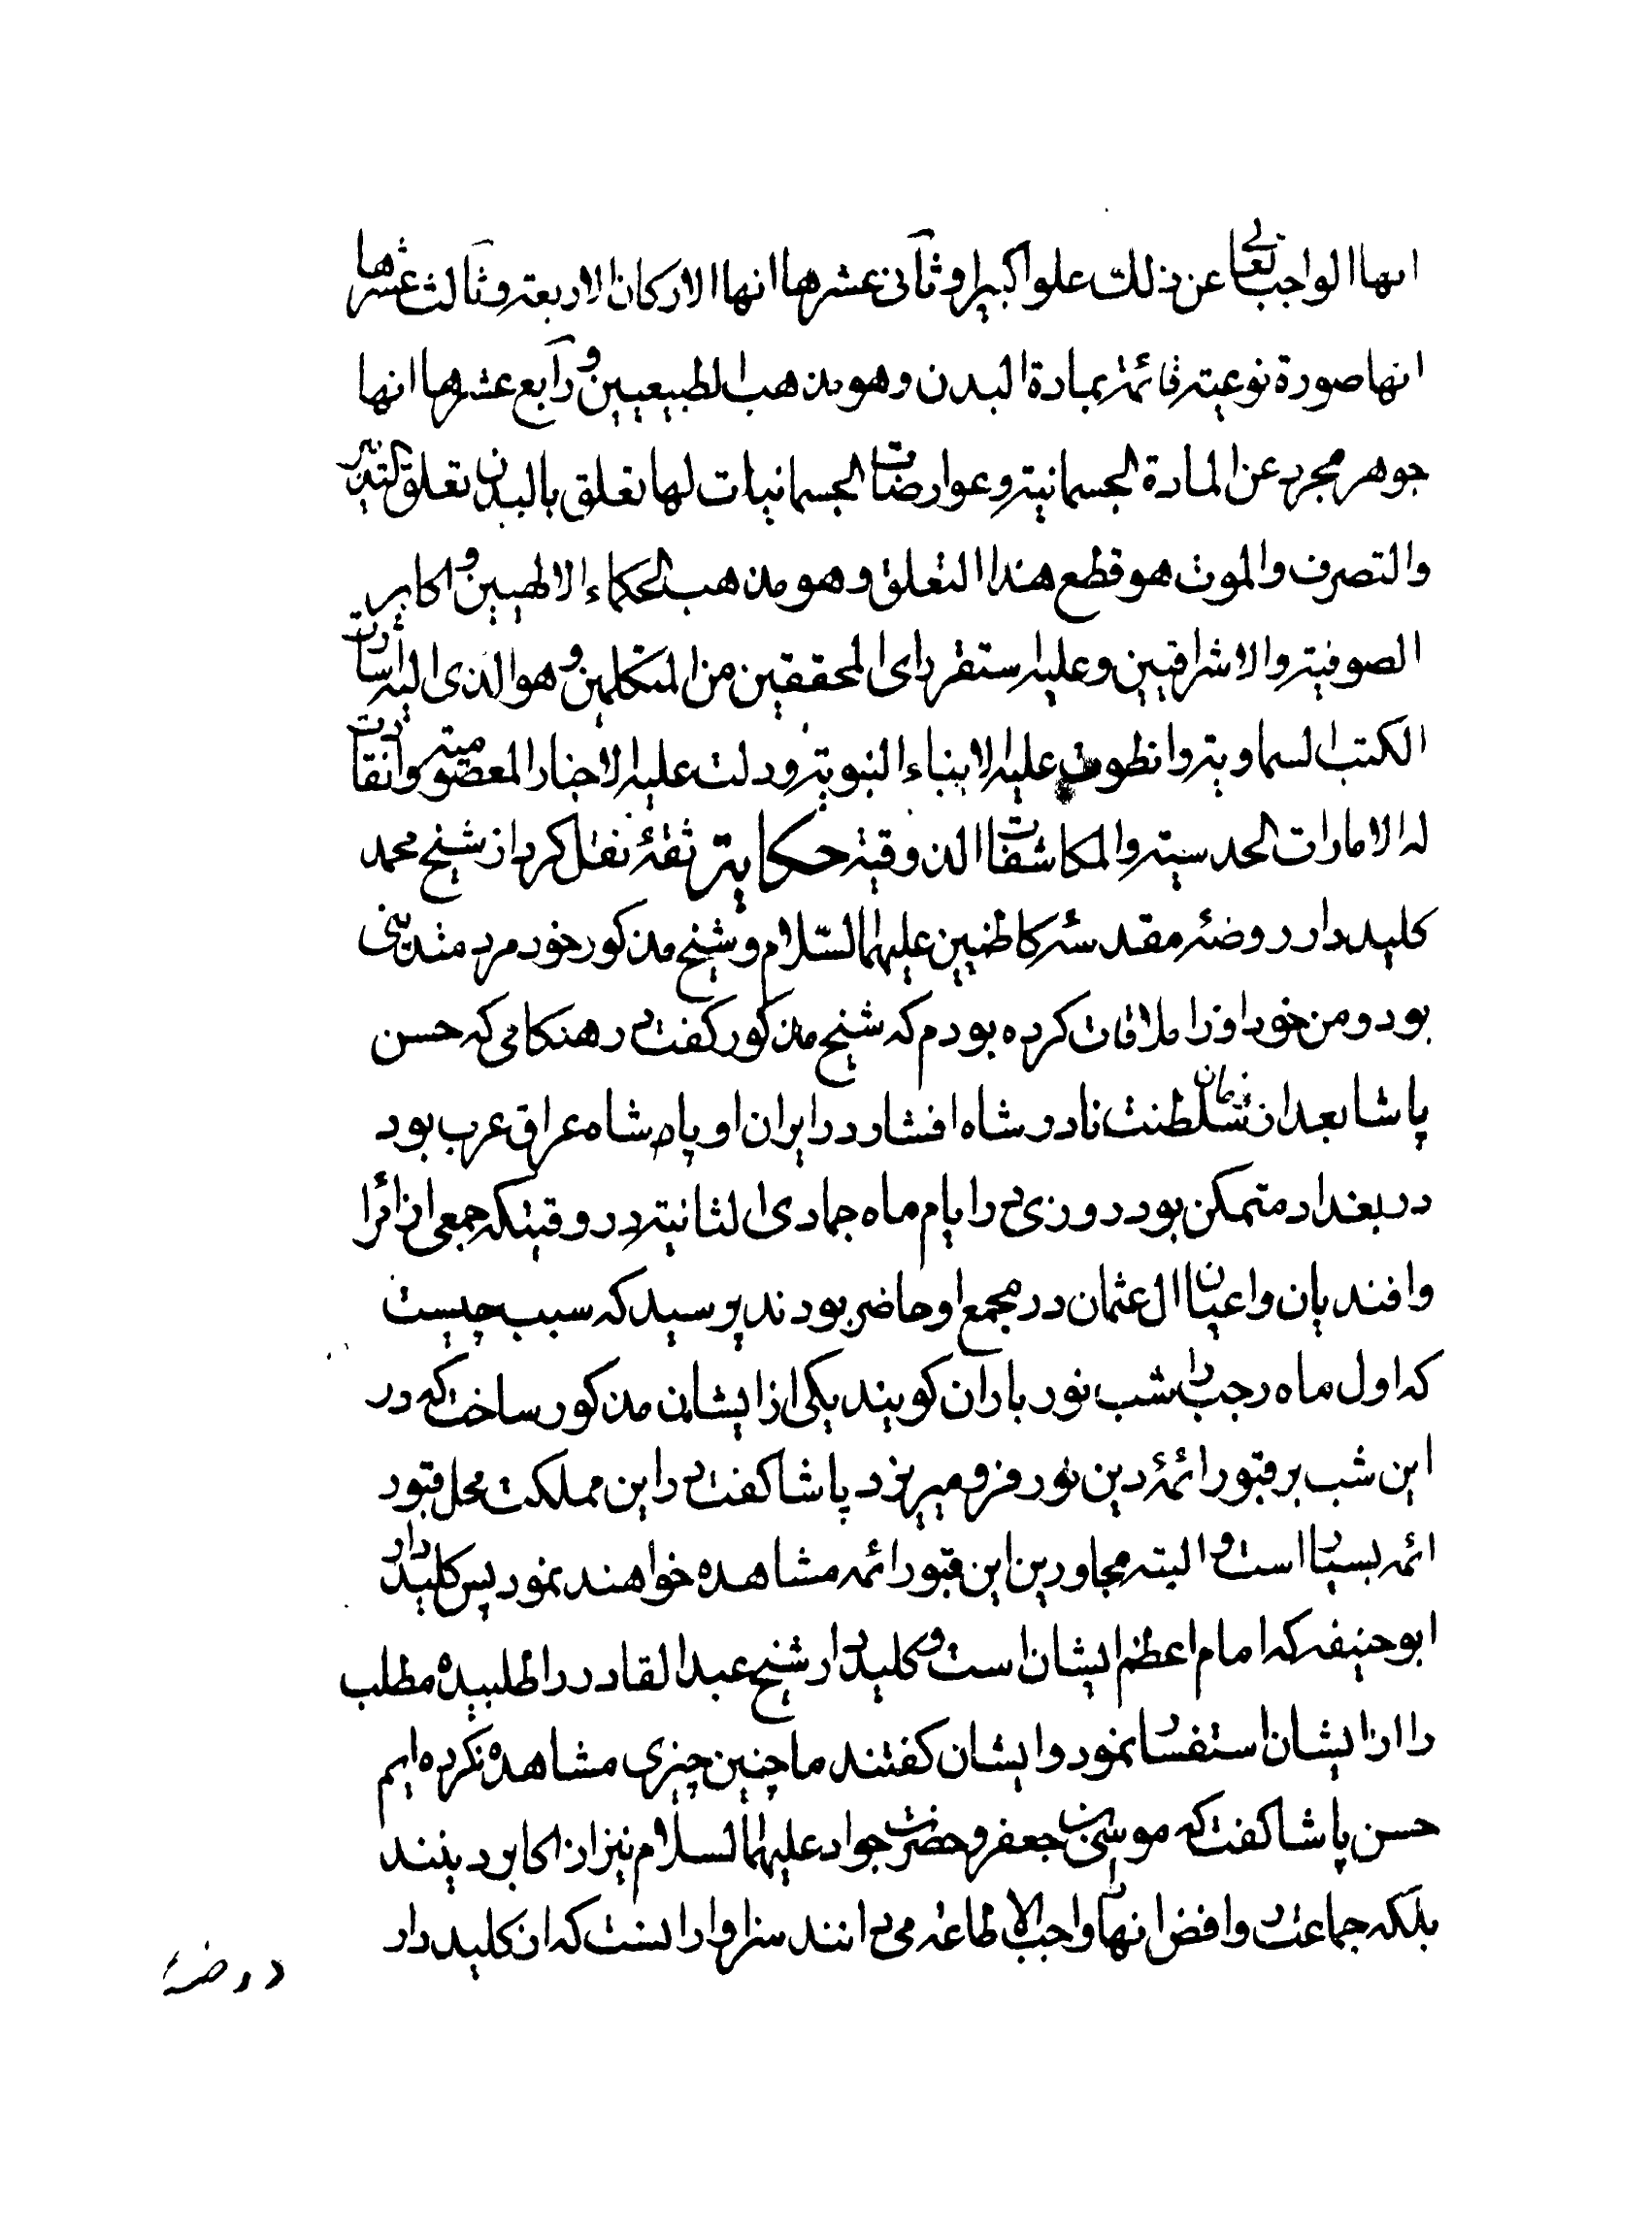 انها الواجب تعالی عن ذلك علوا کبیرا و ثانی عشرها انها الارکان الاربعة و ثالث عشرها
انها صورة نوعیة قائمة بمادة البدن و هو مذهب الطبیعیین و رابع عشرها انها
جوهر مجرد عن المادة الجسمانیة و عوارضات الجسمانیات لها تعلق بالبدن تعلق التدبیر
والتصرف والموت هو قطع هذا التعلق و هو مذهب الحکماء الالهیین و اکابر
الصوفیة والاشراقیین و علیه استقر رای المحققین من المتکلمین و هو الذی الیه اشارت
الکتب السماویة وانطوت علیه الانباء النبویة و دلت علیه الاخبار المعصومیة وانقادت
له الامارات الحدسیة والمکاشفات الذوقیة حکایة ثقۀ نقل کرد از شیخ محمد
کلیددار روضۀ مقدسۀ کاظمین علیهما السّلام و شیخ مذکور خود مرد متدینی
بود و من خود او را ملاقات کرده بودم که شیخ مذکور کفت در هنکامی که حسن
پاشا بعد از زمان سلطنت نادر شاه افشار در ایران او پادشاه عراق عرب بود
در بغداد متمکن بود روزی در ایام ماه جمادی الثانیة در وقتیکه جمعی از امرا
و افندیان و اعیان ال عثمان در مجمع او حاضر بودند پرسید که سبب چیست
که اول ماه رجب را شب نور باران کویند یکی از ایشان مذکور ساخت که در
این شب بر قبور ائمۀ دین نور فرو میریزد پاشا کفت در این مملکت محل قبور
ائمه بسیار است و البته مجاورین این قبور ائمه مشاهده خواهند نمود پس کلیددار
ابوحنیفه که امام اعظم ایشان است و کلیددار شیخ عبدالقادر را طلبیده مطلب
را از ایشان استفسار نمود و ایشان کفتند ما چنین چیزی مشاهده نکرده ایم
حسن پاشا کفت که موسی بن جعفر و حضرت جواد علیهما السلام نیز از اکابر دینند
بلکه جماعت روافض انها را واجب الاطاعه می دانند سزاوار انست که از کلیددار
روضۀ